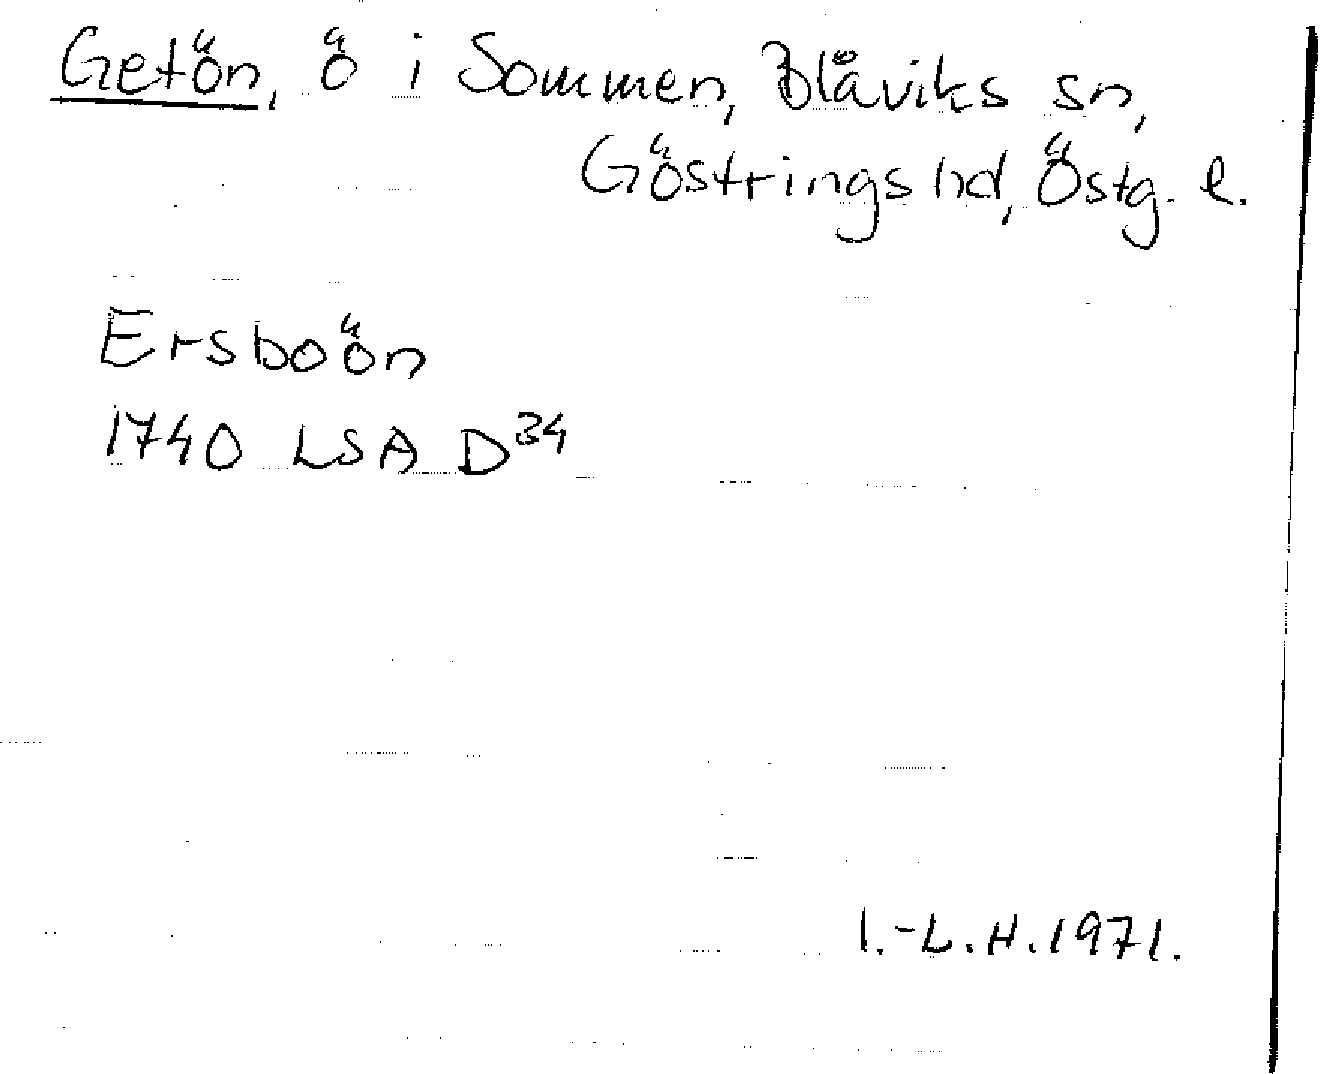 Getön, ö i Sommen, Blåviks sn,
Göstrings hd, Östg. l.
Ersboön
1740 LSA D³⁴
I.-L.H.1971.